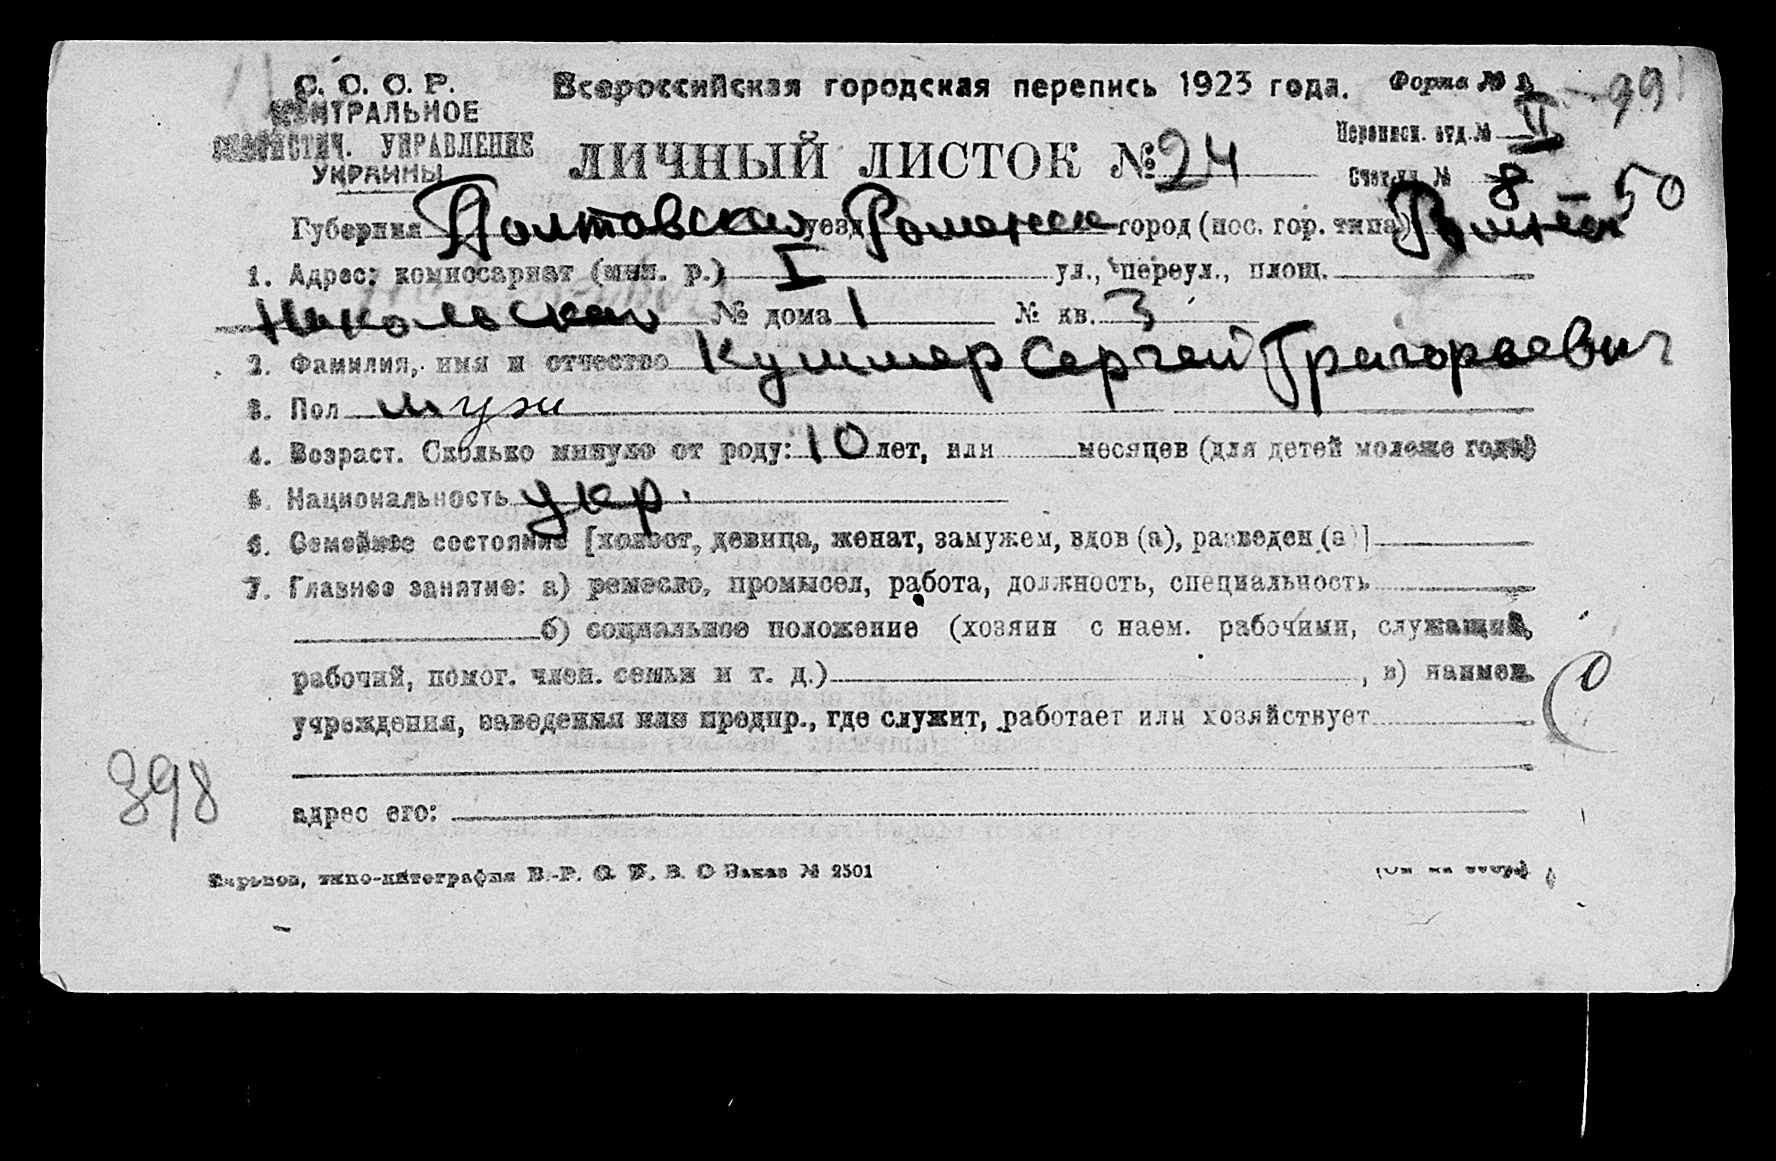 С. С. С. Р. Всероссийская городская перепись 1923 года. Форма №
ЦЕНТРАЛЬНОЕ 99
СТАТИСТИЧ. УПРАВЛЕНИЕ ЛИЧНЫЙ ЛИСТОК № 24 Переписн. отд. № II
УКРАИНЫ Счетн. уч. № 8 - 50
Губерния Полтовская уезд Роменск город (пос. гор. типа)
1. Адрес: комиссариат (мил. р.) I ул., переул., площ.
Никольская № дома 1 № кв. 3
2. Фамилия, имя и отчество Кушмер Сергей Григорьевич
3. Пол муж
4. Возраст. Сколько минуло от роду: 10 лет, или месяцев (для детей моложе года)
5. Национальность укр.
6. Семейное состояние [холост, девица, женат, замужем, вдов (а), разведен (а)]
7. Главное занятие: а) ремесло, промысел, работа, должность, специальность
б) социальное положение (хозяин с наем. рабочими, служащий,
рабочий, помог. член. семьи и т. д.) , в) наимен.
учреждения, заведения или предпр., где служит, работает или хозяйствует
398
адрес его:
Харьков, типо-литография В.-Р. С. У. В. О Заказ № 2501